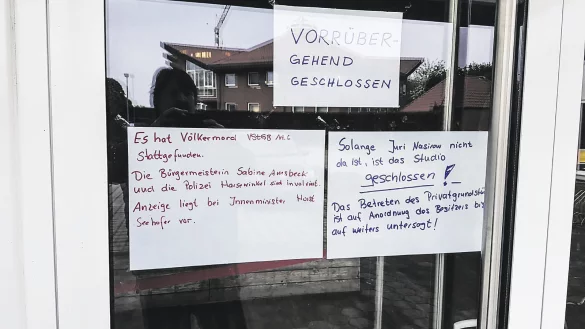 VORRÜBER-
GEHEND
GESCHLOSSEN
Es hat Völkermord VStGB Art. 1
Stattgefunden.
Die Bürgermeisterin Sabine Amsbeck
und die Polizei Harsewinkel sind involviert.
Anzeige liegt bei Innenminister Horst
Seehofer vor.
Solange Juri Nasirow nicht
da ist, ist das Studio
geschlossen!
Das Betreten des Privatgrundstü
ist auf Anordnung des Besitzers bis
auf weiters untersagt!